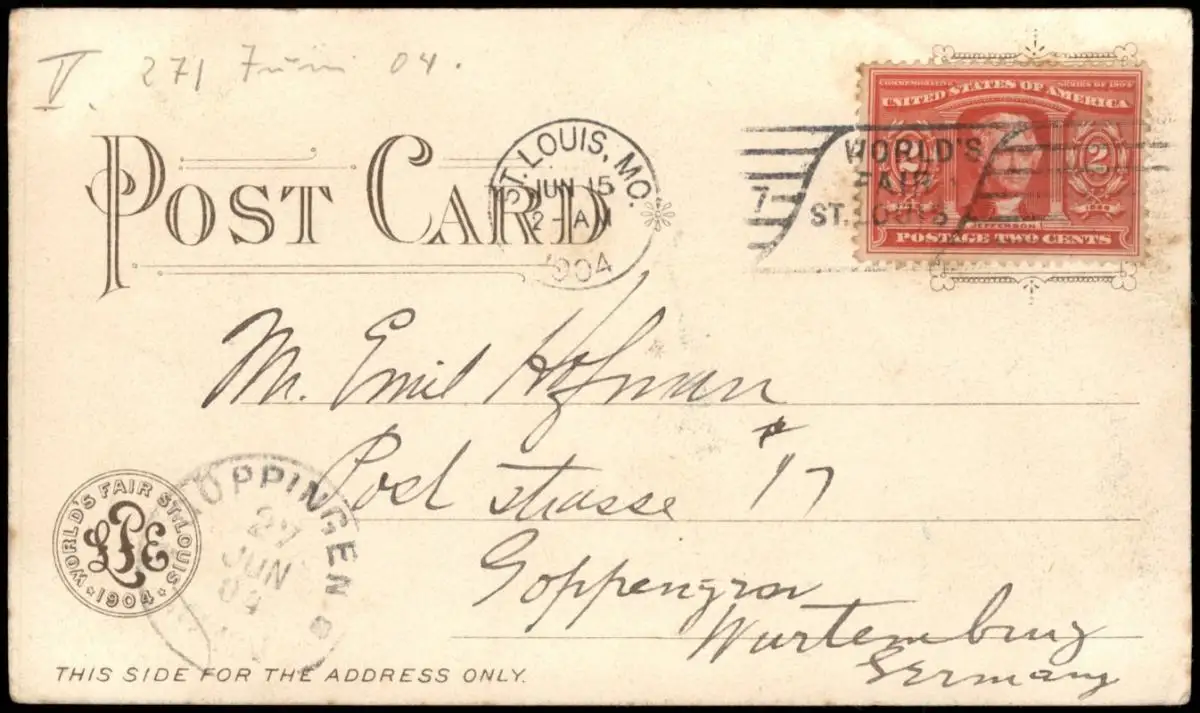 V. 271 Juni 04.
POST CARD
ST. LOUIS, MO.
JUN 15
2 - AM
1904
7
WORLD'S
FAIR
ST. LOUIS
COMMEMORATIVE SERIES OF 1904
UNITED STATES OF AMERICA
2 2
1804
JEFFERSON
POSTAGE TWO CENTS
Mr. Emil Hofman
Post Strasse # 17
Goppengen
Wurtemburg
Germany
WORLD'S FAIR ST. LOUIS
LPE
1904
GOPPINGEN
27
JUN
04
THIS SIDE FOR THE ADDRESS ONLY.